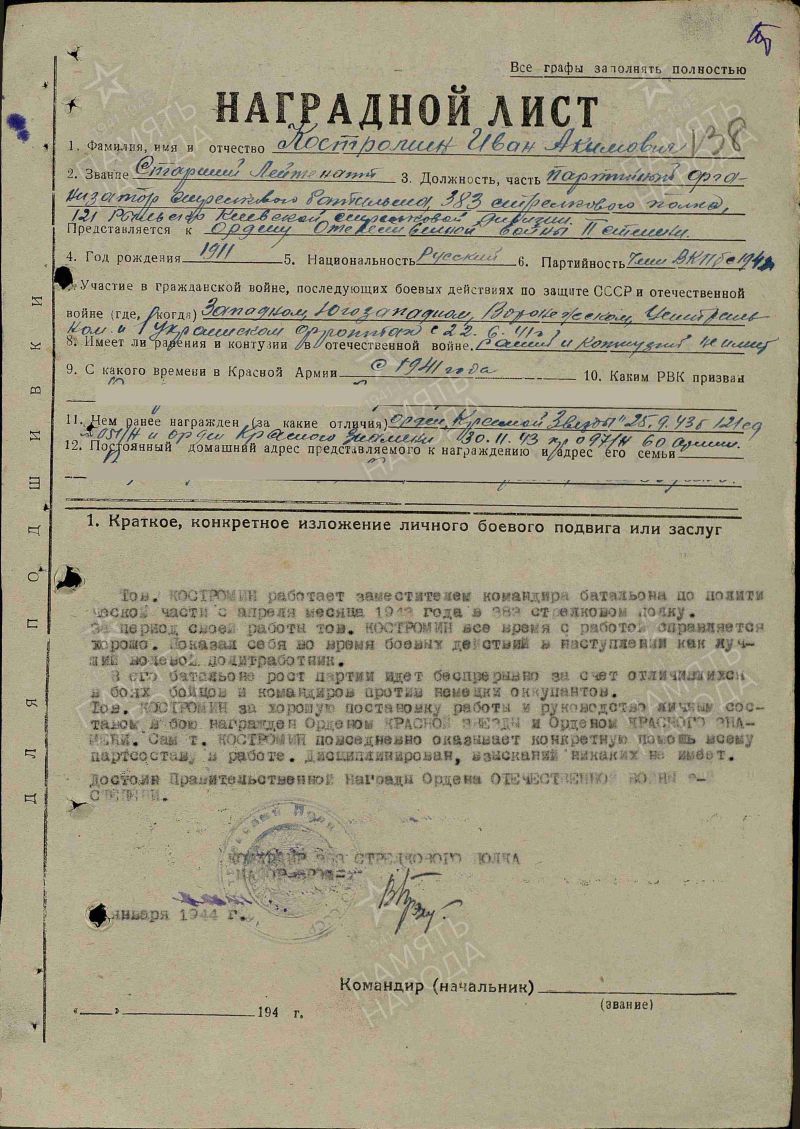 138
Все графы заполнять полностью
НАГРАДНОЙ ЛИСТ
1. Фамилия, имя и отчество Костромин Иван Акимович
2. Звание Старший Лейтенант 3. Должность, часть Партийный орга-
низатор стрелкового батальона, 383 стрелкового полка,
121 Киевской стрелковой дивизии.
Представляется к ордену Отечественной войны II степени.
4. Год рождения 1911 5. Национальность Русский 6. Партийность член ВКП(б) с
Участие в гражданской войне, последующих боевых действиях по защите СССР и отечественной
войне (где, когда) Западном, Югозападном, Воронежском, Централь-
ном и 1 Украинском фронтах с 22.6.41г.
8. Имеет ли ранения и контузии в отечественной войне. и контузий не имеет
9. С какого времени в Красной Армии с 1941 года 10. Каким РВК призван
11. Чем ранее награжден (за какие отличия) орден "Красной Звезды" 25.9.43г 121 сд
051/н и орден Красного Знамени 30.11.43 пр 097/н 60 Армии.
12. Постоянный домашний адрес представляемого к награждению и адрес его семьи
1. Краткое, конкретное изложение личного боевого подвига или заслуг
Тов. КОСТРОМИН работает заместителем командира батальона по полити
ческой части с апреля месяца 1943 года в 383 стрелковом полку.
За период своей работы тов. КОСТРОМИН все время с работой справляется
хорошо. Показал себя во время боевых действий в наступлении как луч-
ший волевой политработник.
В его батальоне рост партии идет беспрерывно за счет отличившихся
в боях бойцов и командиров против немецких оккупантов.
Тов. КОСТРОМИН за хорошую постановку работы и руководство личным сос-
тавом в бою награжден Орденом КРАСНОЙ ЗВЕЗДЫ и Орденом КРАСНОГО ЗНА-
МЕНИ. Сам т. КОСТРОМИН повседневно оказывает конкретную помощь всему
партсоставу в работе. Дисциплинирован, взысканий никаких не имеет.
Достоин Правительственной Награды Ордена ОТЕЧЕСТВЕННОЙ ВОЙНЫ 2-
СТЕПЕНИ.
КОМАНДИР 383 СТРЕЛКОВОГО ПОЛКА
января 1944 г.
Командир (начальник)
(звание)
"___" 194 г.
ДЛЯ ПОДШИВКИ
ПАМЯТЬ НАРОДА